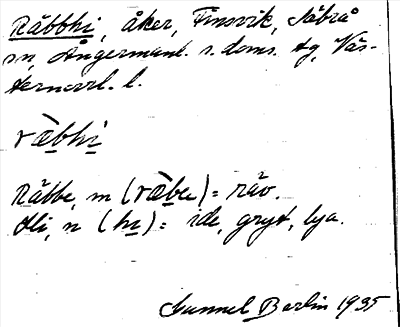 Räbbhi, åker, Finsvik, Säbrå
sn, Ångermanl. s. doms. tg, Väs-
ternorrl. l.
ræ̀bhi
Räbbe, m (ræ̀be) = räv.
Hi, n (hi) = ide, gryt, lya.
Gunnel Berlin 1935